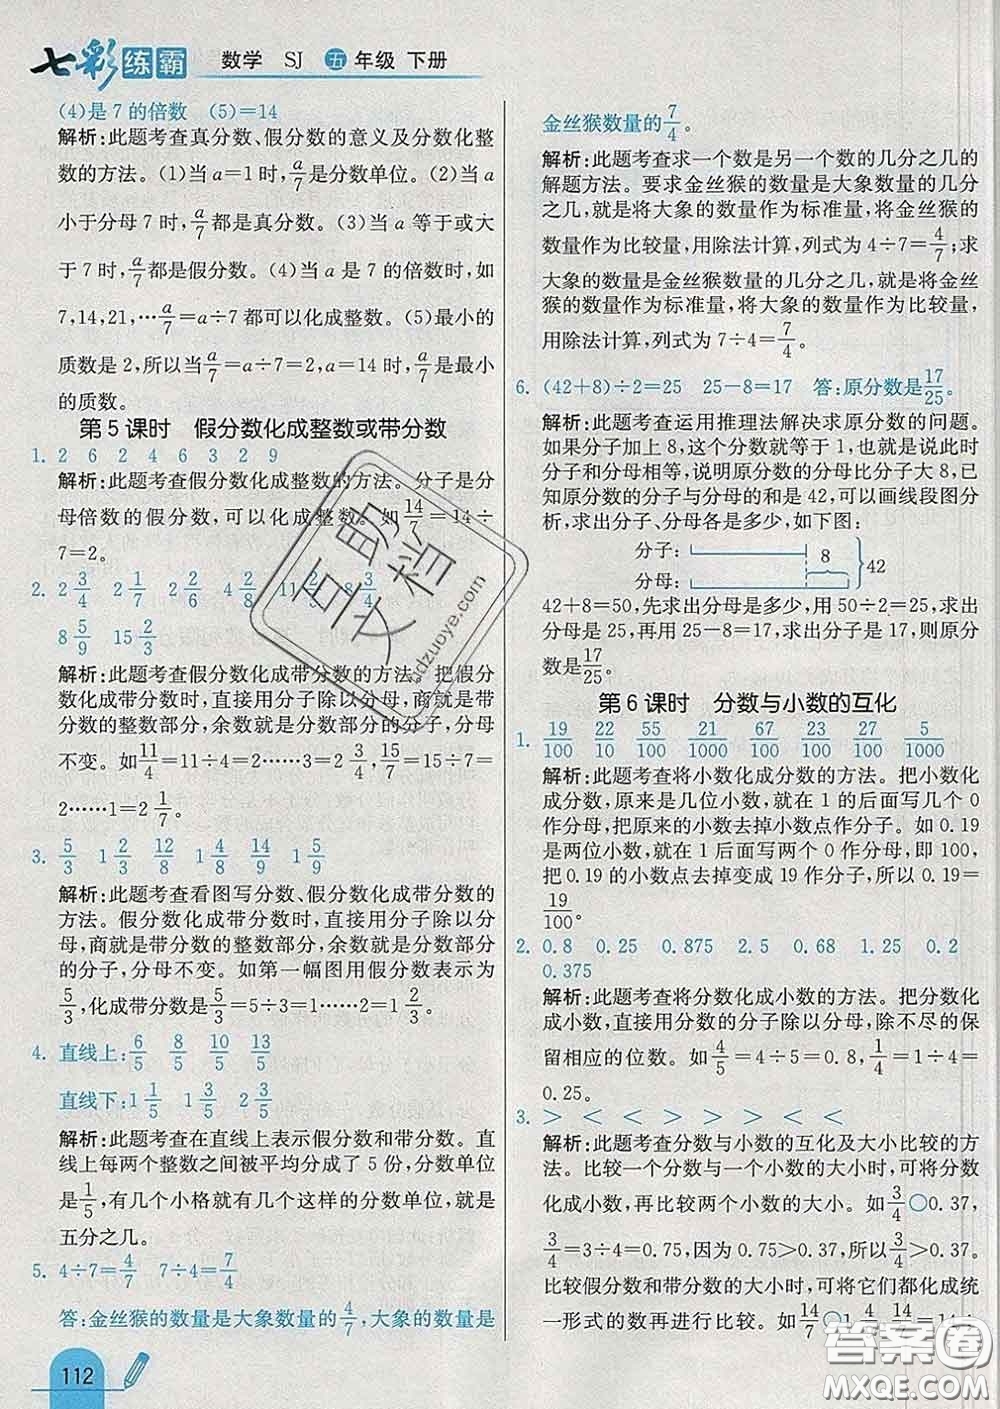 七彩练霸 数学 SJ 五年级 下册
(4)是 7 的倍数 (5)=14
解析:此题考查真分数、假分数的意义及分数化整
数的方法。(1)当 a=1 时,a/7是分数单位。(2)当 a
小于分母 7 时,a/7都是真分数。(3)当 a 等于或大
于 7 时,a/7都是假分数。(4)当 a 是 7 的倍数时,如
7,14,21,…a/7=a÷7 都可以化成整数。(5)最小的
质数是 2,所以当a/7=a÷7=2,a=14 时,a/7是最小
的质数。
第 5 课时 假分数化成整数或带分数
1. 2 6 2 4 6 3 2 9
解析:此题考查假分数化成整数的方法。分子是分
母倍数的假分数,可以化成整数。如14/7=14÷
7=2。
2. 2 3/4 2 1/7 2 2/6 4 2/8 11 2/5 8 3/4
8 5/9 15 2/3
解析:此题考查假分数化成带分数的方法。把假分
数化成带分数时,直接用分子除以分母,商就是带
分数的整数部分,余数就是分数部分的分子,分母
不变。如11/4=11÷4=2……3=2 3/4,15/7=15÷7=
2……1=2 1/7。
3. 5/3 1 2/3 12/8 1 4/8 14/9 1 5/9
解析:此题考查看图写分数、假分数化成带分数的
方法。假分数化成带分数时,直接用分子除以分
母,商就是带分数的整数部分,余数就是分数部分
的分子,分母不变。如第一幅图用假分数表示为
5/3,化成带分数是5/3=5÷3=1……2=1 2/3。
4. 直线上:6/5 8/5 10/5 13/5
直线下:1 1/5 1 3/5 2 2/5
解析:此题考查在直线上表示假分数和带分数。直
线上每两个整数之间被平均分成了 5 份,分数单位
是1/5,有几个小格就有几个这样的分数单位,就是
五分之几。
5. 4÷7=4/7 7÷4=7/4
答:金丝猴的数量是大象数量的4/7,大象的数量是
112
金丝猴数量的7/4。
解析:此题考查求一个数是另一个数的几分之几的
解题方法。要求金丝猴的数量是大象数量的几分
之几,就是将大象的数量作为标准量,将金丝猴的
数量作为比较量,用除法计算,列式为 4÷7=4/7;求
大象的数量是金丝猴数量的几分之几,就是将金丝
猴的数量作为标准量,将大象的数量作为比较量,
用除法计算,列式为 7÷4=7/4。
6. (42+8)÷2=25 25-8=17 答:原分数是17/25。
解析:此题考查运用推理法解决求原分数的问题。
如果分子加上 8,这个分数就等于 1,也就是说此时
分子和分母相等,说明原分数的分母比分子大 8,已
知原分数的分子与分母的和是 42,可以画线段图分
析,求出分子、分母各是多少,如下图:
分子: 8
分母: 42
42+8=50,先求出分母是多少,用 50÷2=25,求出
分母是 25,再用 25-8=17,求出分子是 17,则原分
数是17/25。
第 6 课时 分数与小数的互化
1. 19/100 22/10 55/100 21/1000 67/100 23/100 27/100 5/1000
解析:此题考查将小数化成分数的方法。把小数化
成分数,原来是几位小数,就在 1 的后面写几个 0
作分母,把原来的小数去掉小数点作分子。如 0.19
是两位小数,就在 1 后面写两个 0 作分母,即 100,
把 0.19 的小数点去掉变成 19 作分子,所以 0.19=
19/100。
2. 0.8 0.25 0.875 2.5 0.68 1.25 0.2
0.375
解析:此题考查将分数化成小数的方法。把分数化
成小数,直接用分数的分子除以分母,除不尽的保
留相应的位数。如4/5=4÷5=0.8,1/4=1÷4=
0.25。
3. > < < > > > < <
解析:此题考查分数与小数的互化及大小比较的方
法。比较一个分数与一个小数的大小时,可将分数
化成小数,再比较两个小数的大小。如3/4○0.37,
3/4=3÷4=0.75,因为 0.75>0.37,所以3/4>0.37。
比较假分数和带分数的大小时,可将它们都化成统
一形式的数再进行比较。如14/7○1
直助文档
xdzuoye.com
答案圈
MXQE.COM